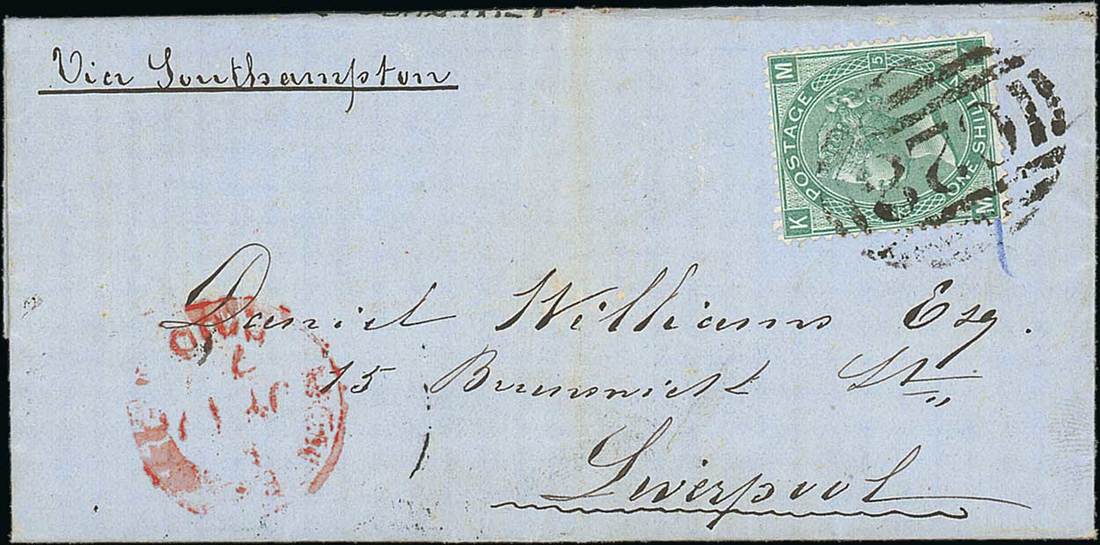 Via Southampton
M
5
POSTAGE
ONE SHILLING
K
M
Daniel Williams Esq.
15 Brunswick St.,
Liverpool